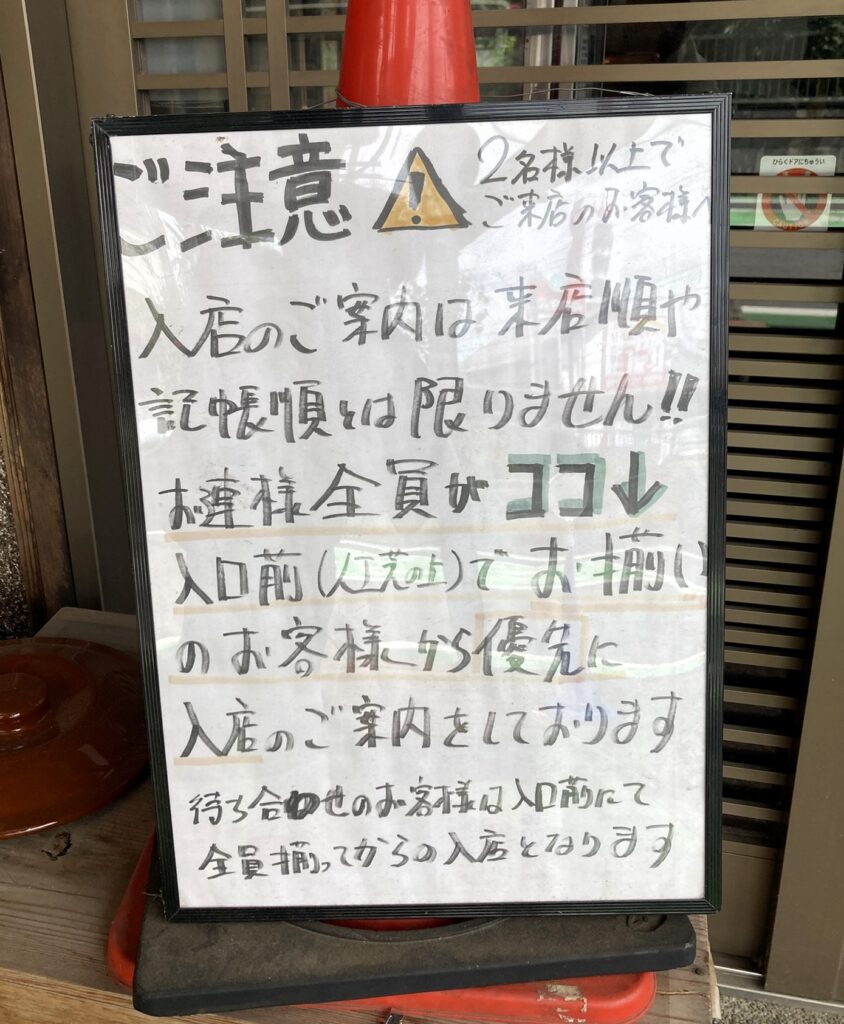 ご注意
2名様以上で
ご来店のお客様へ
入店のご案内は来店順や
記帳順とは限りません!!
お連様全員がココ↓
入口前(人工芝の上)でお揃い
のお客様から優先に
入店のご案内をしております
待ち合わせのお客様は入口前にて
全員揃ってからの入店となります
ひらくドアにちゅうい